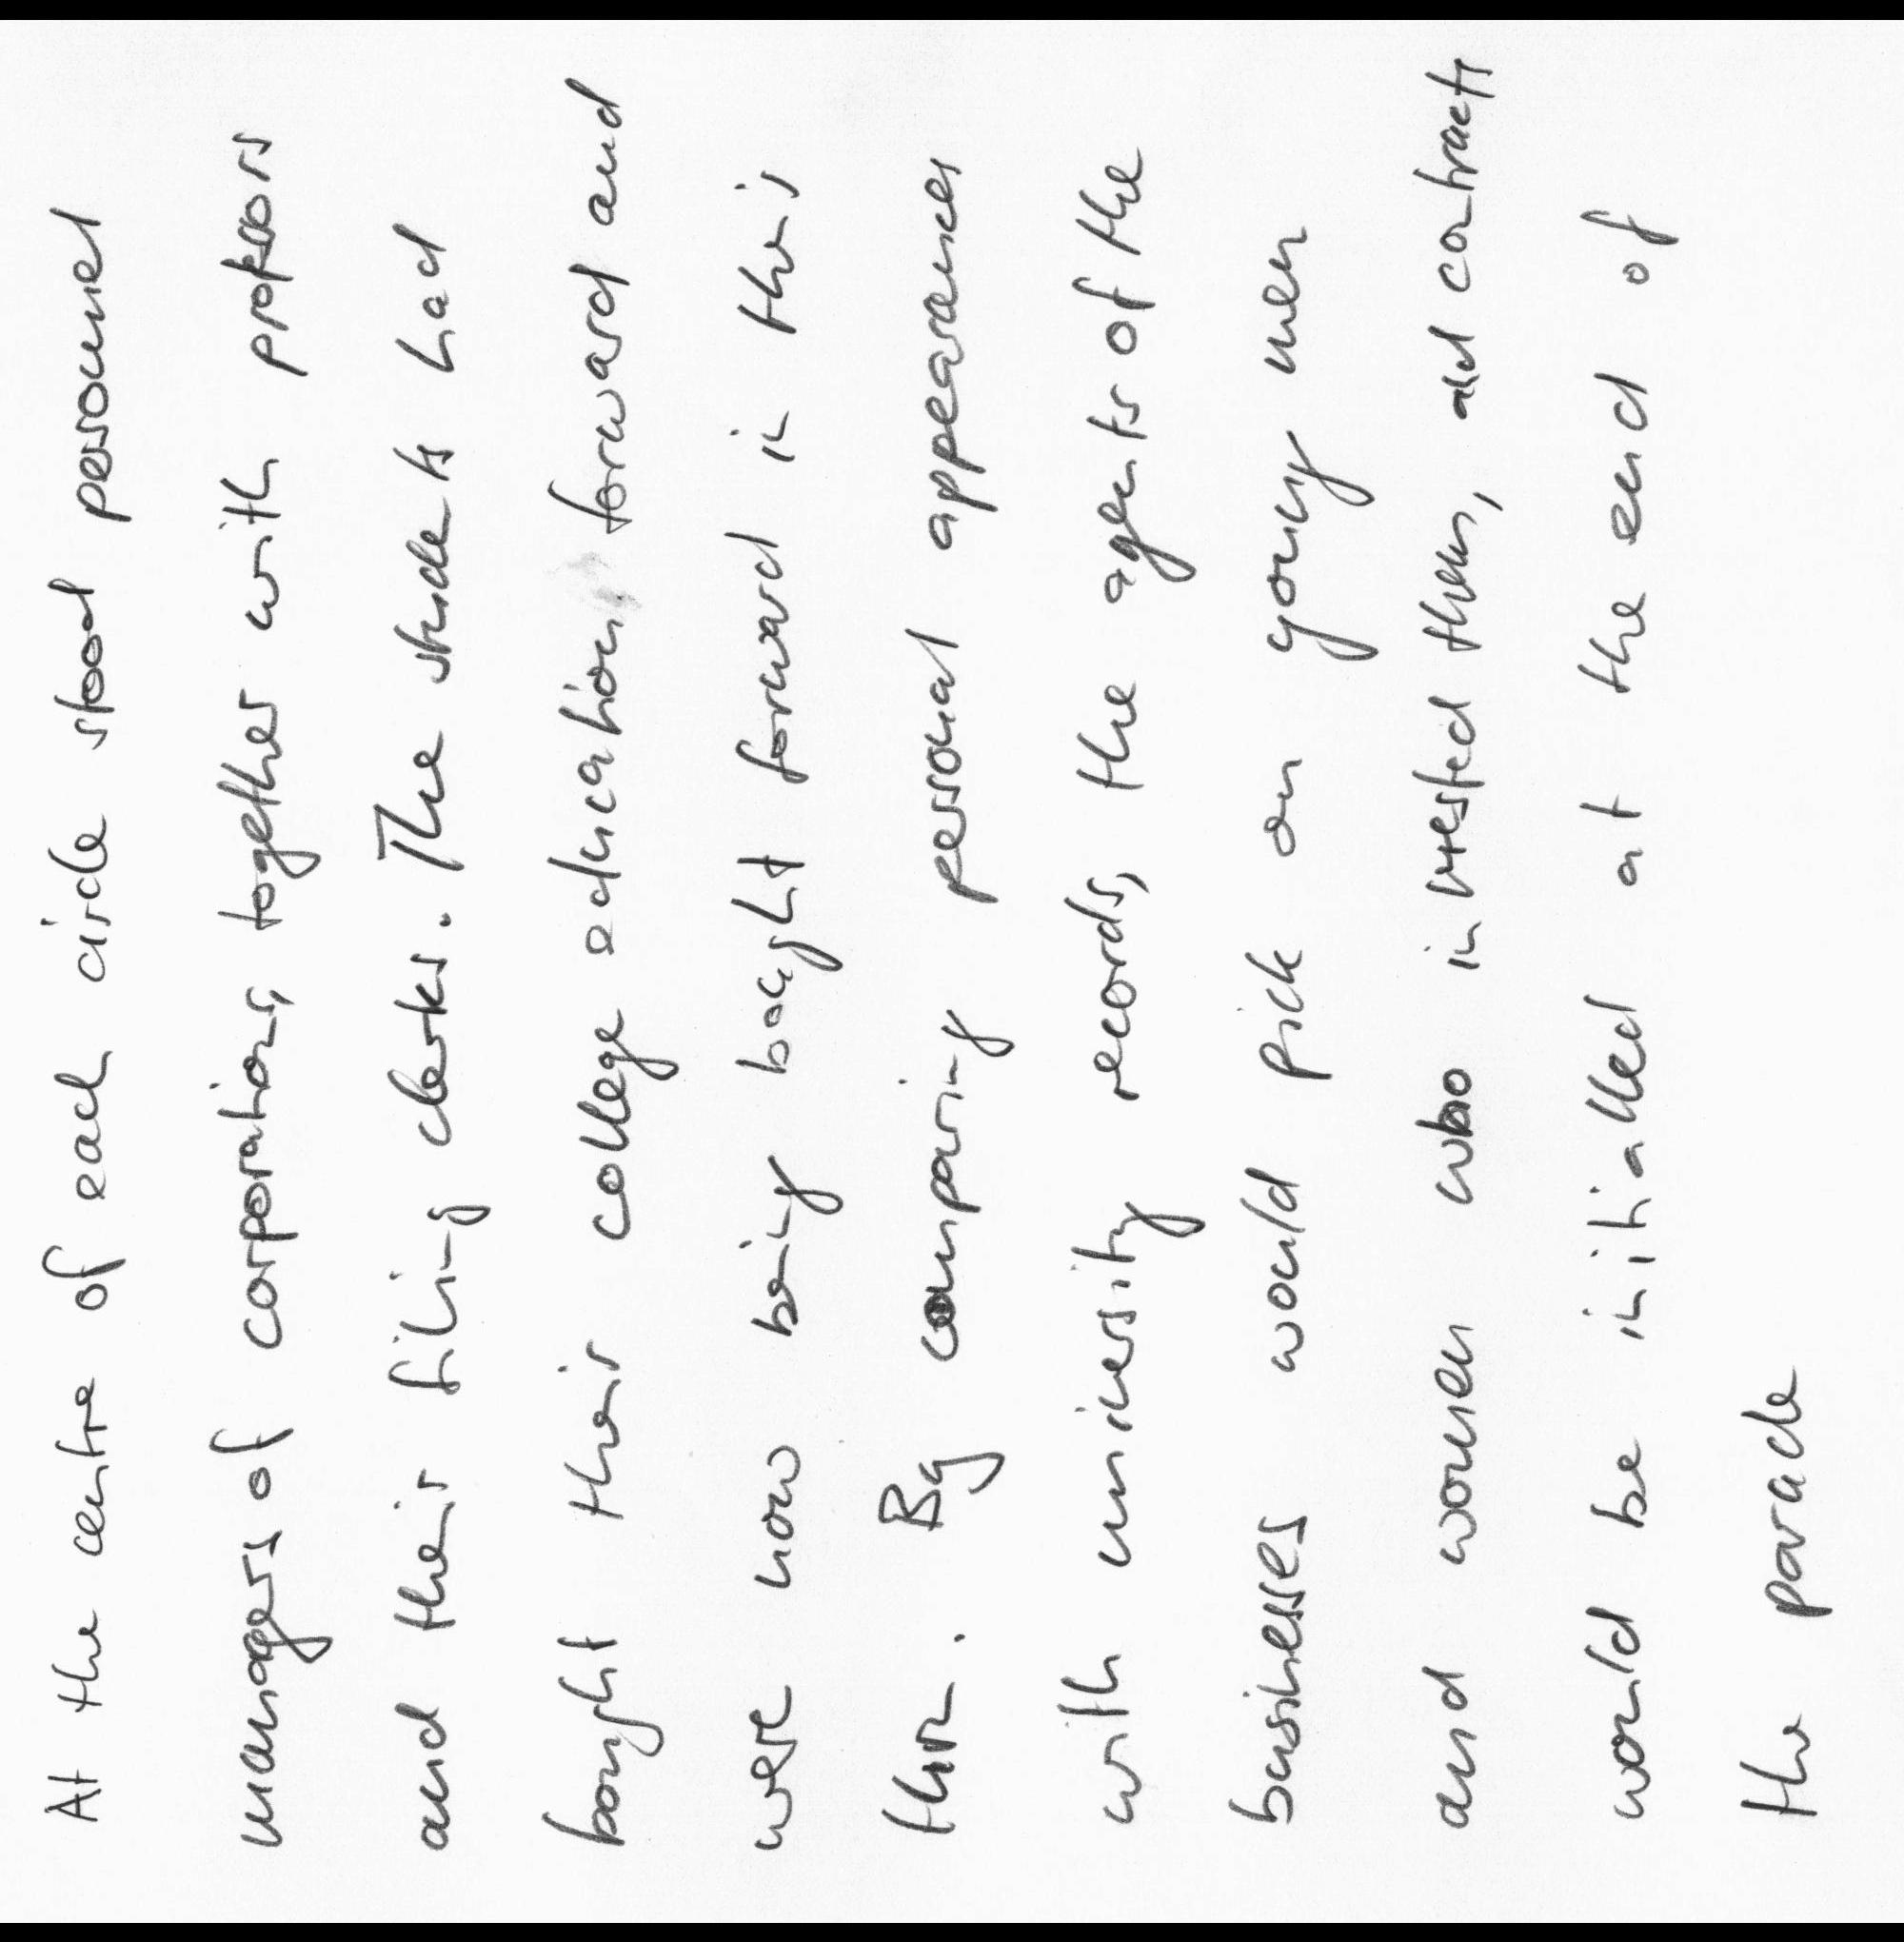 At the centre of each circle stood personnel
managers of corporations, together with professors
and their filing clerks. The students had
bought their college educations forward and
were now being bought forward in their
turn. By comparing personal appearances
with university records, the agents of the
businesses would pick on young men
and women who interested them, and contracts
would be initialled at the end of
the parade